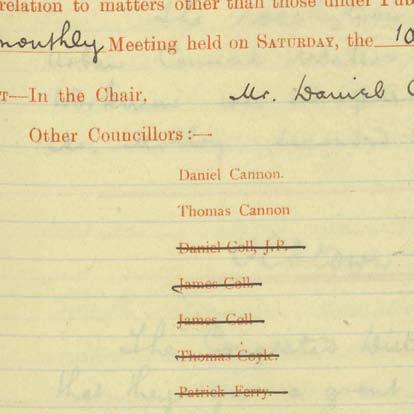 relation to matters other than those under Pub
monthly Meeting held on SATURDAY, the 10
T—In the Chair, Mr. Daniel C
Other Councillors:—
Daniel Cannon.
Thomas Cannon
Daniel Coll, J.P.
James Coll.
James Coll
Thomas Coyle.
Patrick Ferry.